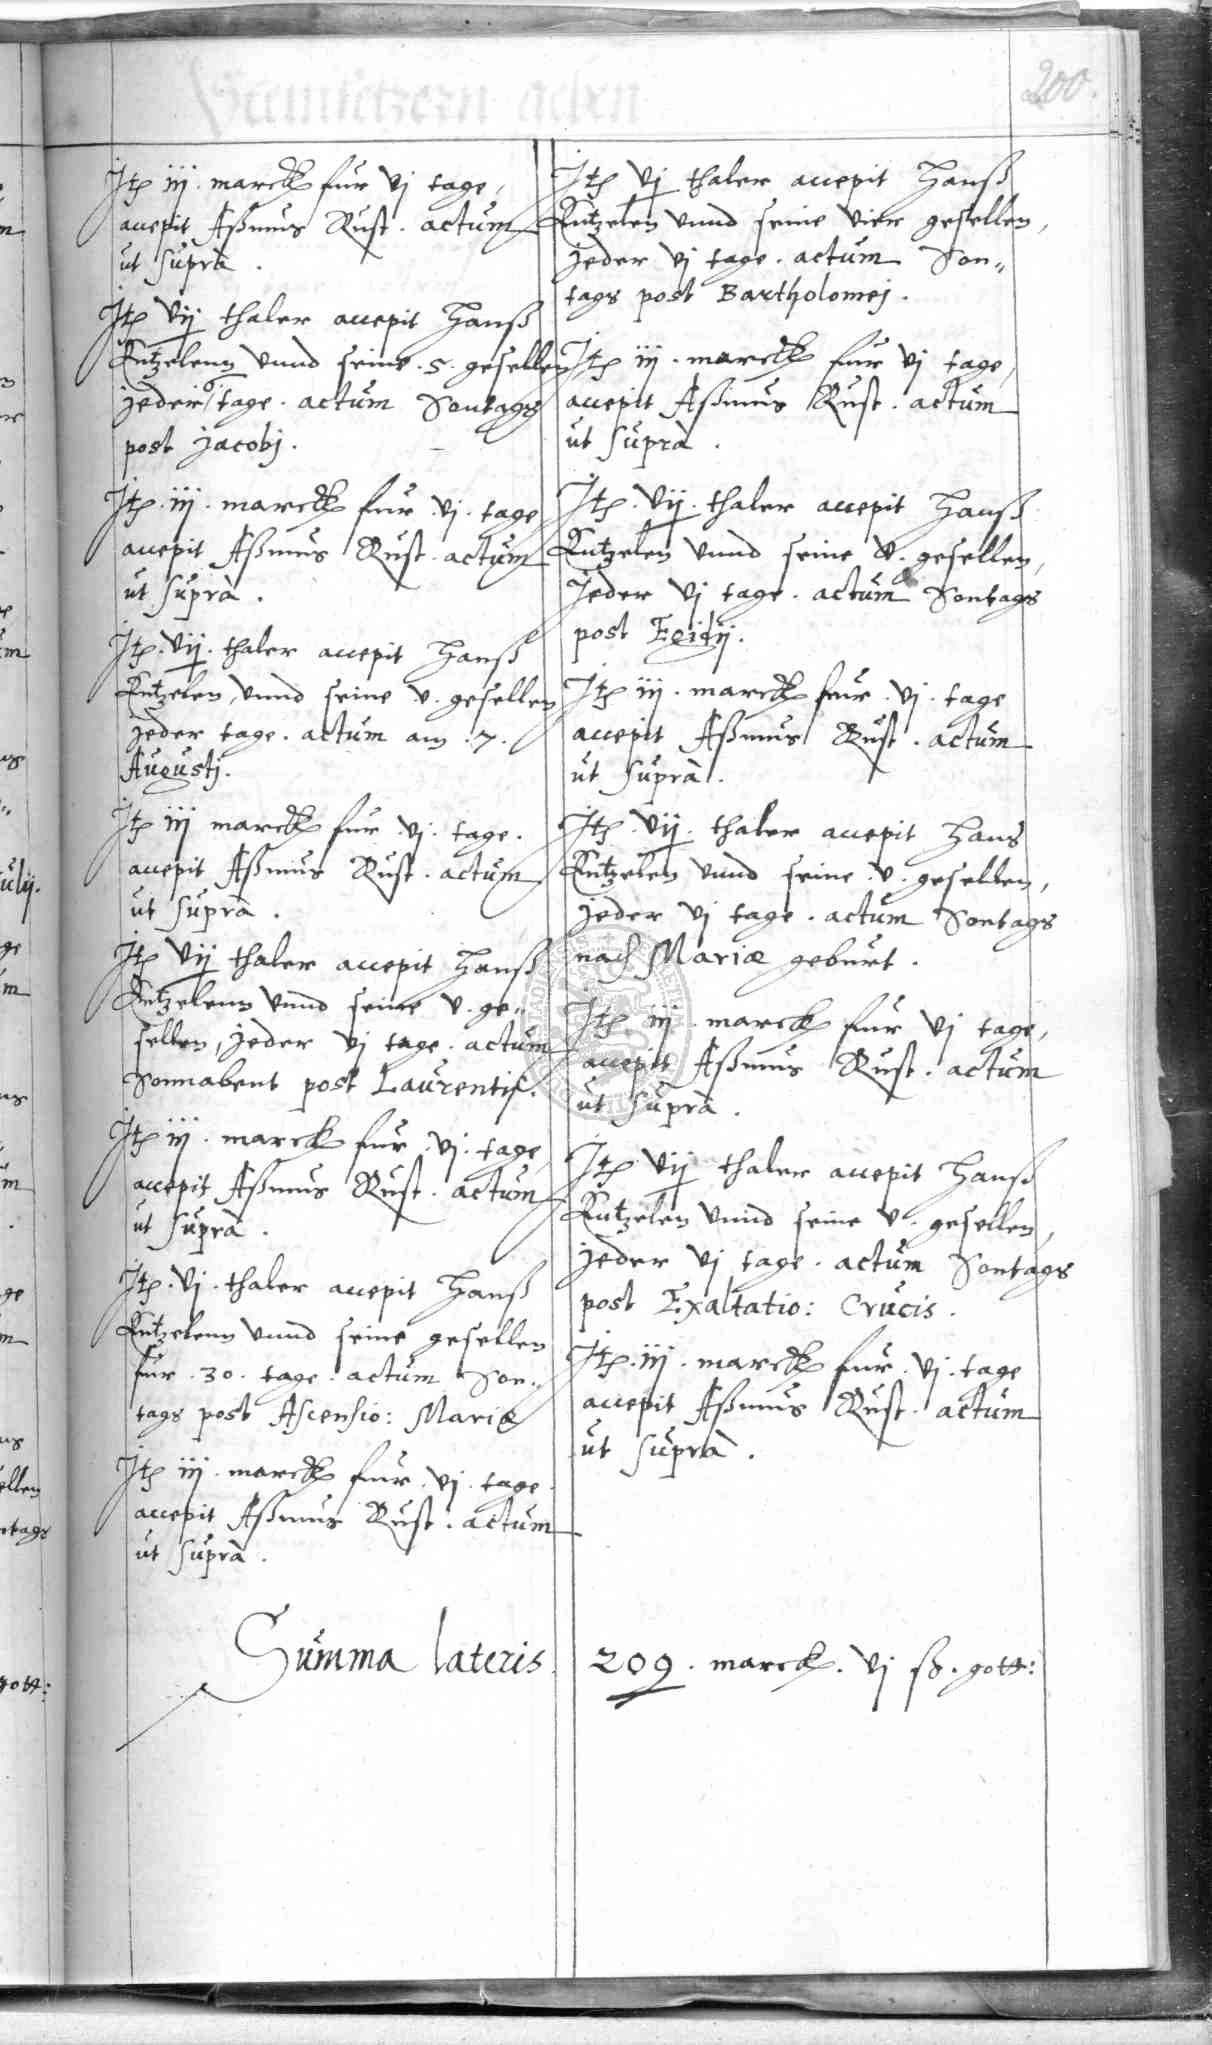 200.
Itꝫ iij. marck fur vj tage,
accepit Aßmus Rust. actum
ut suprà.
Itꝫ vij thaler accepit Hanß
Kutzelenn vnnd seine .5. gesellen
jeder tage. actum Sontags
post Jacobj.
Itꝫ. iij. marck fur .vj. tage
accepit Aßmus Rust. actum
ut suprà.
Itꝫ. vij. thaler accepit Hanß
Kutzelen, vnnd seine .v. gesellen
jeder tage. actum am .7.
Augustj.
Itꝫ iij marck fur .vj. tage.
accepit Aßmus Rust. actum
ut suprà.
Itꝫ vij thaler accepit Hanß
Kutzelenn vnnd seine v. ge„
sellen, jeder vj tage. actum
Sonnabent post Laurentij.
Itꝫ iij. marck fur .vj. tage,
accepit Aßmus Rust. actum
ut suprà.
Itꝫ. vj. thaler accepit Hanß
Kutzelenn vnnd seine gesellen
fur .30. tage. actum Son„
tags post Ascensio: Mariæ
Itꝫ iij. marck fur .vj. tage.
accepit Aßmus Rust. actum
ut suprà.
Itꝫ vj thaler accepit Hanß
Kutzelen vnnd seine vier gesellen,
jeder vj tage. actum Son„
tags post Bartholomej.
Itꝫ iij. marck fur vj tage,
accepit Aßmus Rust. actum
ut suprà.
Itꝫ. vij. thaler accepit Hanß
Kutzelen vnnd seine v. gesellen,
Jeder vj tage. actum Sontags
post Egidij.
Itꝫ iij. marck fur .vj. tage
accepit Aßmus Rust. actum
ut suprà.
Itꝫ. vij. thaler accepit Hans
Kutzelen vnnd seine .v. gesellen,
jeder vj tage. actum Sontags
nach Mariæ geburt.
Itꝫ iij. marck fur vj tage,
accepit Aßmus Rust. actum
ut suprà.
Itꝫ vij thaler accepit Hanß
Kutzelen vnnd seine v. gesellen,
jeder vj tage. actum Sontags
post Exaltatio: Crucis.
Itꝫ. iij. marck fur .vj. tage
accepit Aßmus Rust. actum
ut suprà.
Summa lateris 209. marck. vj ß. gott: